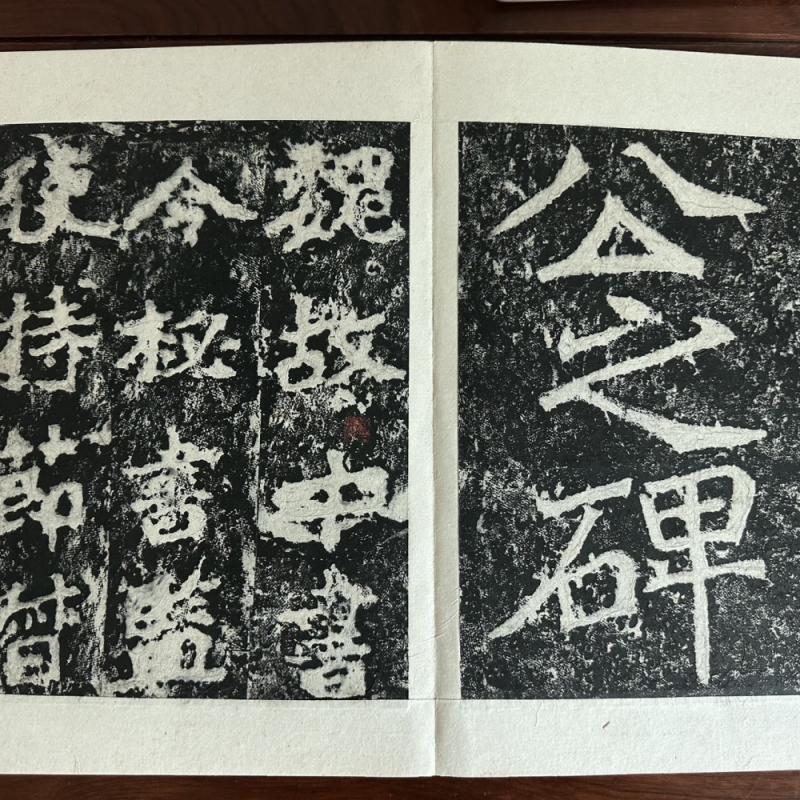 公之碑
魏故中書
令秘書監
使持節督